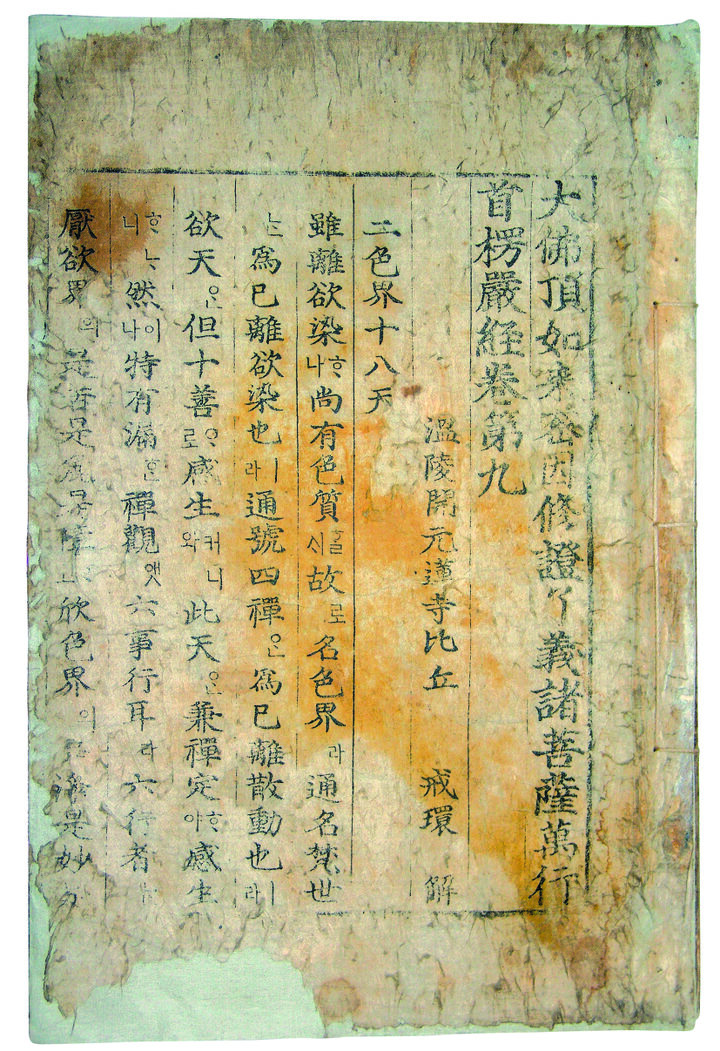 大佛頂如來密因修證了義諸菩薩萬行
首楞嚴経卷第九
溫陵開元蓮寺比丘 戒環 解
二色界十八天
雖離欲染ᄒᆞ나尚有色質ᄒᆞᆯᄉᆡ故로名色界라通名梵世
ᄂᆞᆫ爲已離欲染也ㅣ라通號四禪ᄋᆞᆫ爲已離散動也ㅣ라
欲天ᄋᆞᆫ但十善ᄋᆞ로感生커니와此天ᄋᆞᆫ兼禪定ᄒᆞ야感生
ᄒᆞᄂᆞ니然이나特有漏ᄒᆞᆫ禪觀앳六事行耳라六行者ᄂᆞᆫ
厭欲界의是苦是欣色界이淨是妙